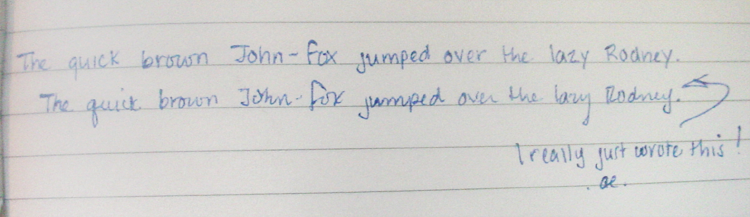 The quick brown John-Fox jumped over the lazy Rodney.
The quick brown John-Fox jumped over the lazy Rodney.
I really just wrote this!